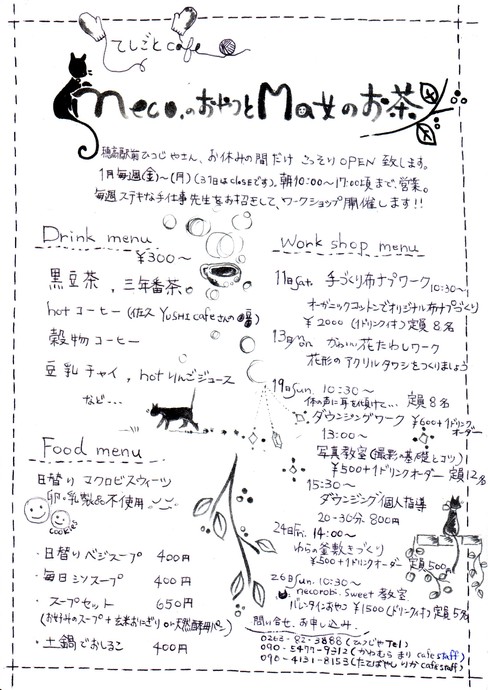 てしごと cafe
neco.のおやつとMa女のお茶
穂高駅前ひつじやさん、お休みの間だけ こっそりOPEN致します。
1月毎週(金)〜(月)(3日はcloseです)。朝10:00〜17:00頃まで、営業。
毎週ステキな手仕事先生をお招きして、ワークショップ開催します!!
Drink menu
¥300〜
黒豆茶、三年番茶。
hotコーヒー(佐久YUSHI cafeさんの豆)
穀物コーヒー
豆乳チャイ、hotりんごジュース
など…
Food menu
日替り マクロビスウィーツ
卵・乳製品不使用
cookies
・日替りベジスープ 400円
・毎日ミソスープ 400円
・スープセット 650円
(おかずみそスープ+玄米おにぎりor天然酵母パン)
・土鍋でおしるこ 400円
Work shop menu
11日sat. 手づくり布ナプワーク
10:30〜
オーガニックコットンでオリジナル布ナプづくり
¥2000(1ドリンク付)定員8名
13日 かわいい花たわしワーク
花形のアクリルタワシをつくりましょう
19日sun. 10:30〜
体の声に耳を傾けて… 定員8名
ダウジングワーク ¥600+1ドリンクオーダー
13:00〜
写真教室(撮影基礎とコツ)
¥500+1ドリンクオーダー 定員12名
15:30〜
ダウジング個人指導
20-30分 800円
24日Fri. 14:00〜
わらの釜敷きづくり
¥500+1ドリンクオーダー 定員
26日sun. 10:30〜
necorobi.sweet教室
バレンタインおやつ ¥1500(ドリンク付)定員5名
問い合せ、お申し込み.
0263-82-3888(ひつじやTel)
090-5477-9312(かわむら まり cafe staff)
090-4131-8153(たてばやし りか cafe staff)